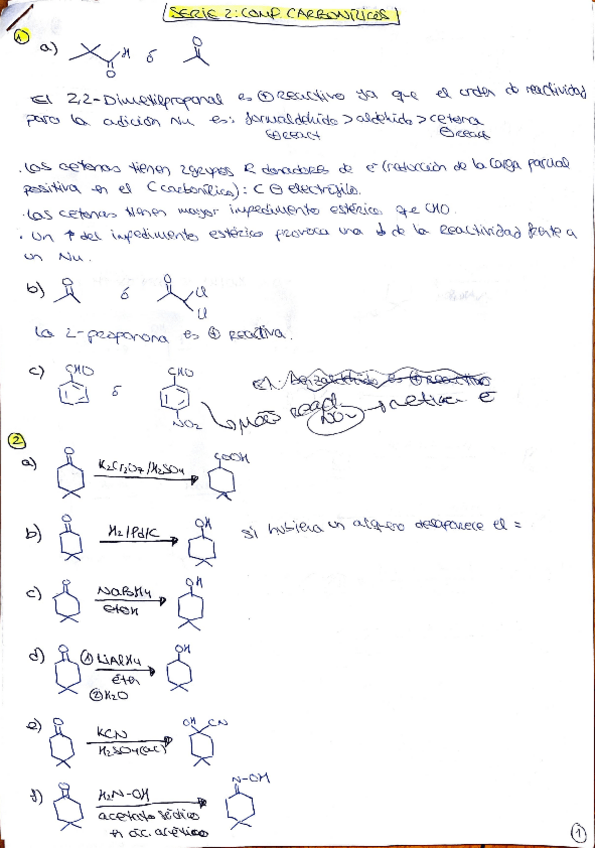 SERIE 2: COMP. CARBONÍLICOS
1
a) H O ó O
El 2,2-Dimetilpropanal es ⊕ reactivo ya que el orden de reactividad
para la adición Nu es: formaldehído > aldehído > cetona
⊕ react ⊖ react
· Las cetonas tienen 2 grupos R donadores de e⁻ (reducción de la carga parcial
positiva en el C carbonílico): C ⊖ electrófilo.
· Las cetonas tienen mayor impedimento estérico que CHO.
· Un ↑ del impedimento estérico provoca una ↓ de la reactividad frente a
un Nu.
b) O ó O Cl Cl
La 2-propanona es ⊕ reactiva.
c) CHO ó CHO NO₂
El Benzaldehído es ⊕ reactivo
más React. NO₂ → retira e⁻
2
a) O K₂Cr₂O₇/H₂SO₄ COOH
b) O H₂/Pd/C OH si hubiera un alqueno desaparece el =
c) O NaBH₄ EtOH OH
d) O ① LiAlH₄ éter ② H₂O OH
e) O KCN H₂SO₄(ac) OH CN
f) O H₂N-OH N-OH
acetato sódico
+ ác. acético
1